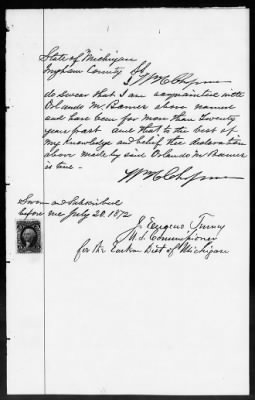 State of Michigan
Ingham County SS
I Wm C Chapman
do swear that I am acquainted with
Orlando M. Barnes above named
and have been for more than twenty
years past and that to the best of
my knowledge and belief thee declaration
above made by said Orlando M Barnes
is true –
Wm C Chapman
Sworn and Subscribed
before me July 20. 1872
J. Eugene Tenney
U.S. Commissioner
for the Eastern Dist of Michigan